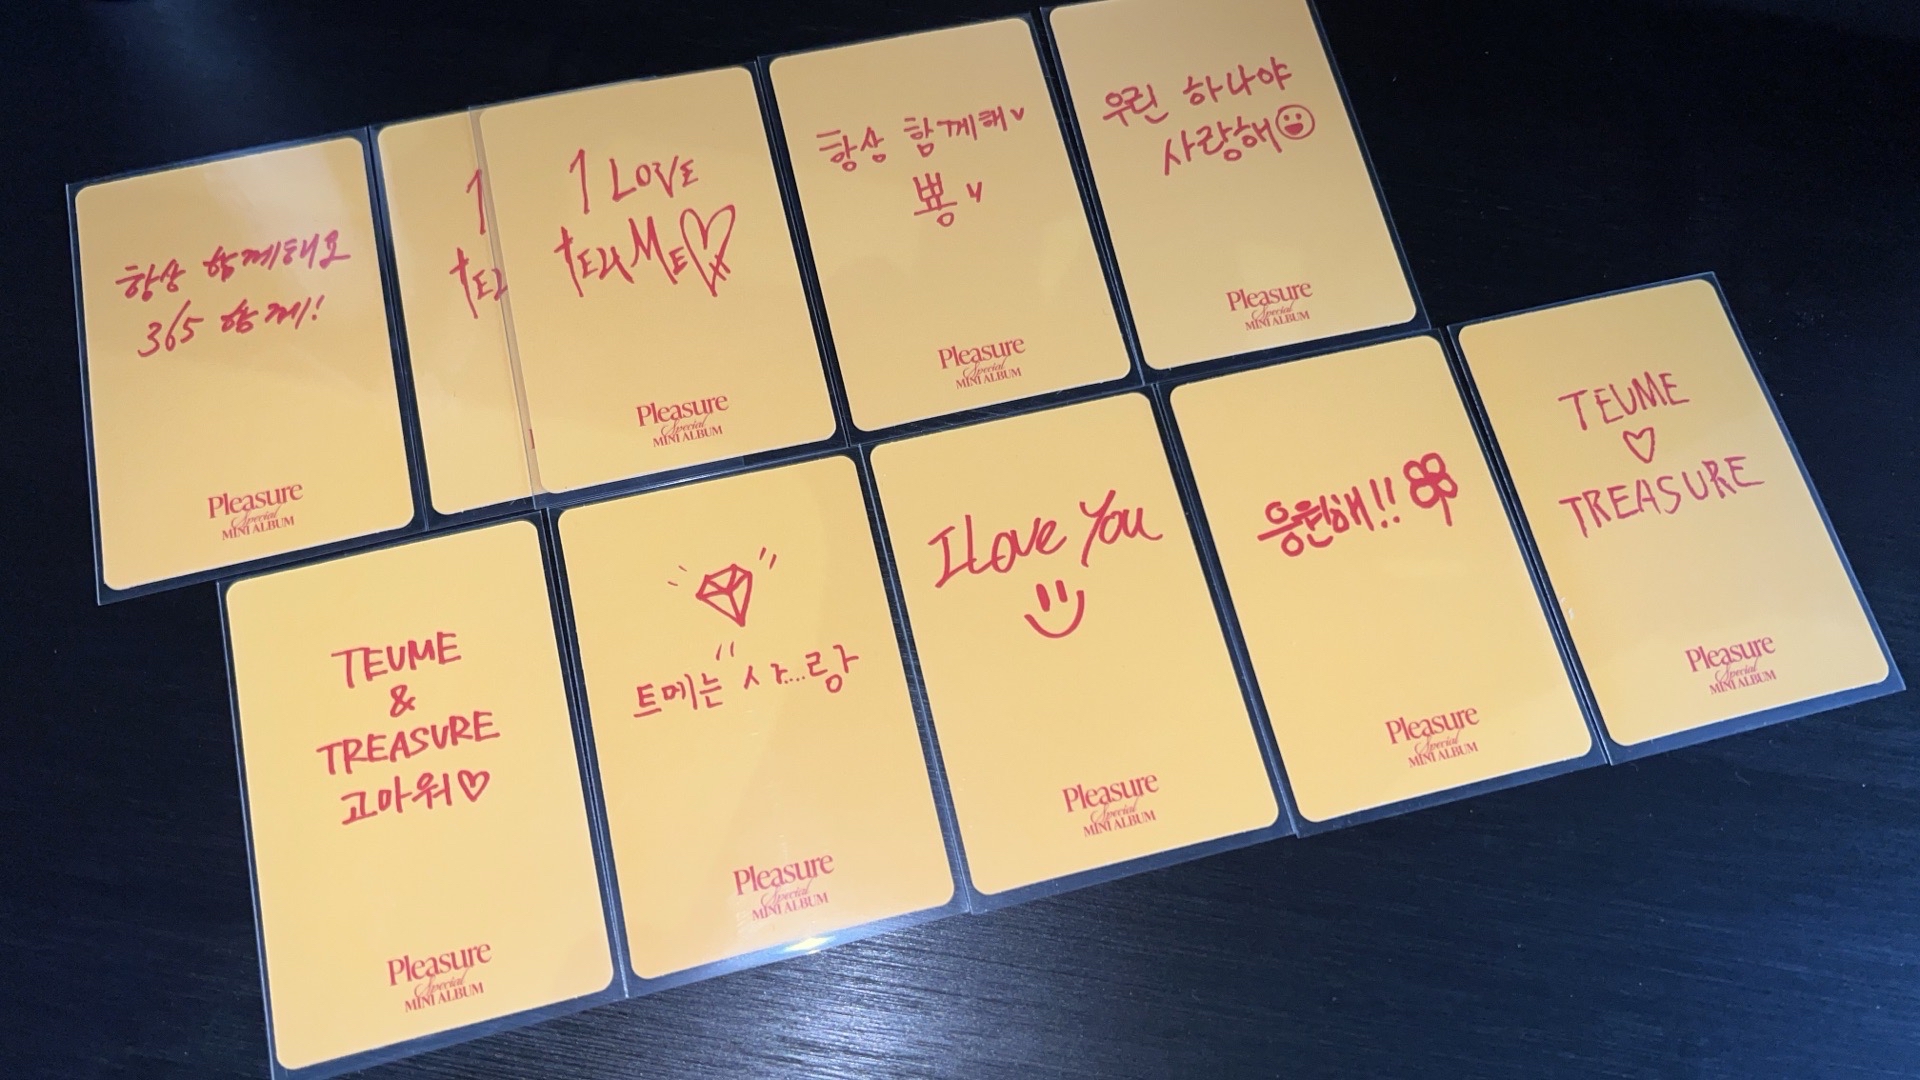 항상 함께해요
365 함께!
Pleasure
Special
MINI ALBUM
I
TEU
I LOVE
TEUME
Pleasure
Special
MINI ALBUM
항상 함께해
뿅
Pleasure
Special
MINI ALBUM
우린 하나야
사랑해
Pleasure
Special
MINI ALBUM
TEUME
&
TREASURE
고마워
Pleasure
Special
MINI ALBUM
트메는 사....랑
Pleasure
Special
MINI ALBUM
I Love You
Pleasure
Special
MINI ALBUM
응원해!!
Pleasure
Special
MINI ALBUM
TEUME
TREASURE
Pleasure
Special
MINI ALBUM